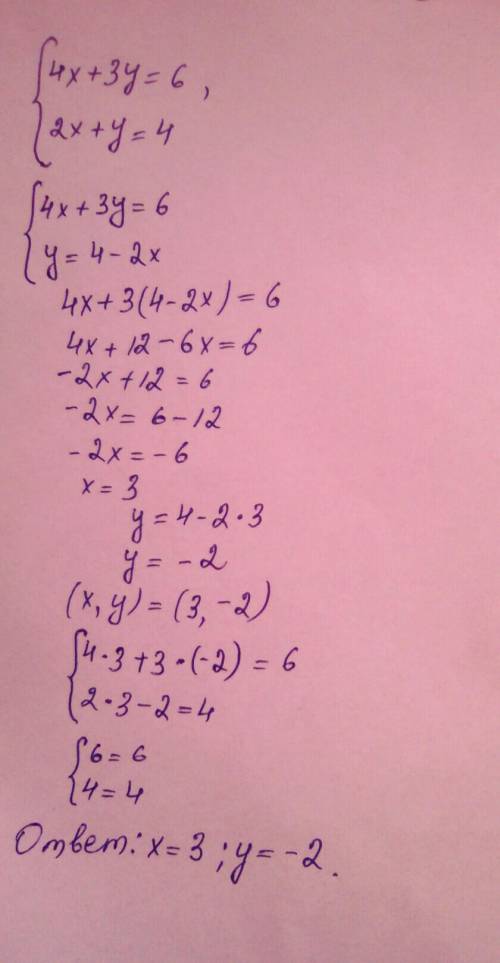 {4x+3y=6,
{2x+y=4
{4x+3y=6
{y=4-2x
4x+3(4-2x)=6
4x+12-6x=6
-2x+12=6
-2x=6-12
-2x=-6
x=3
y=4-2·3
y=-2
(x,y)=(3,-2)
{4·3+3·(-2)=6
{2·3-2=4
{6=6
{4=4
Ответ: x=3; y=-2.